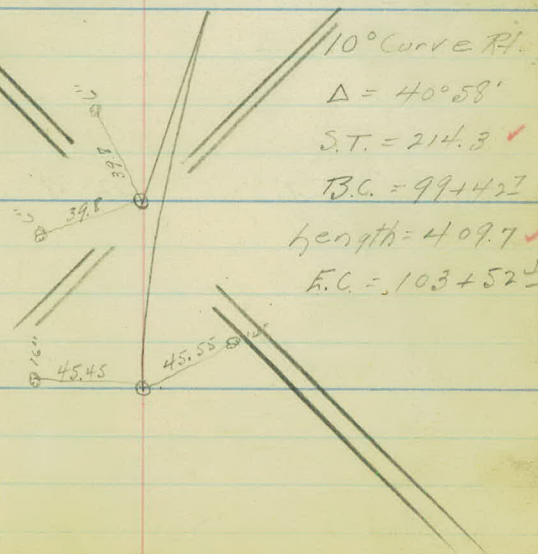 10° Curve Rt.
Δ = 40°58'
S.T. = 214.3
B.C. = 99+42⁷
Length = 409.7
E.C. = 103+52⁴
39.8
39.8
16"
45.45
45.55